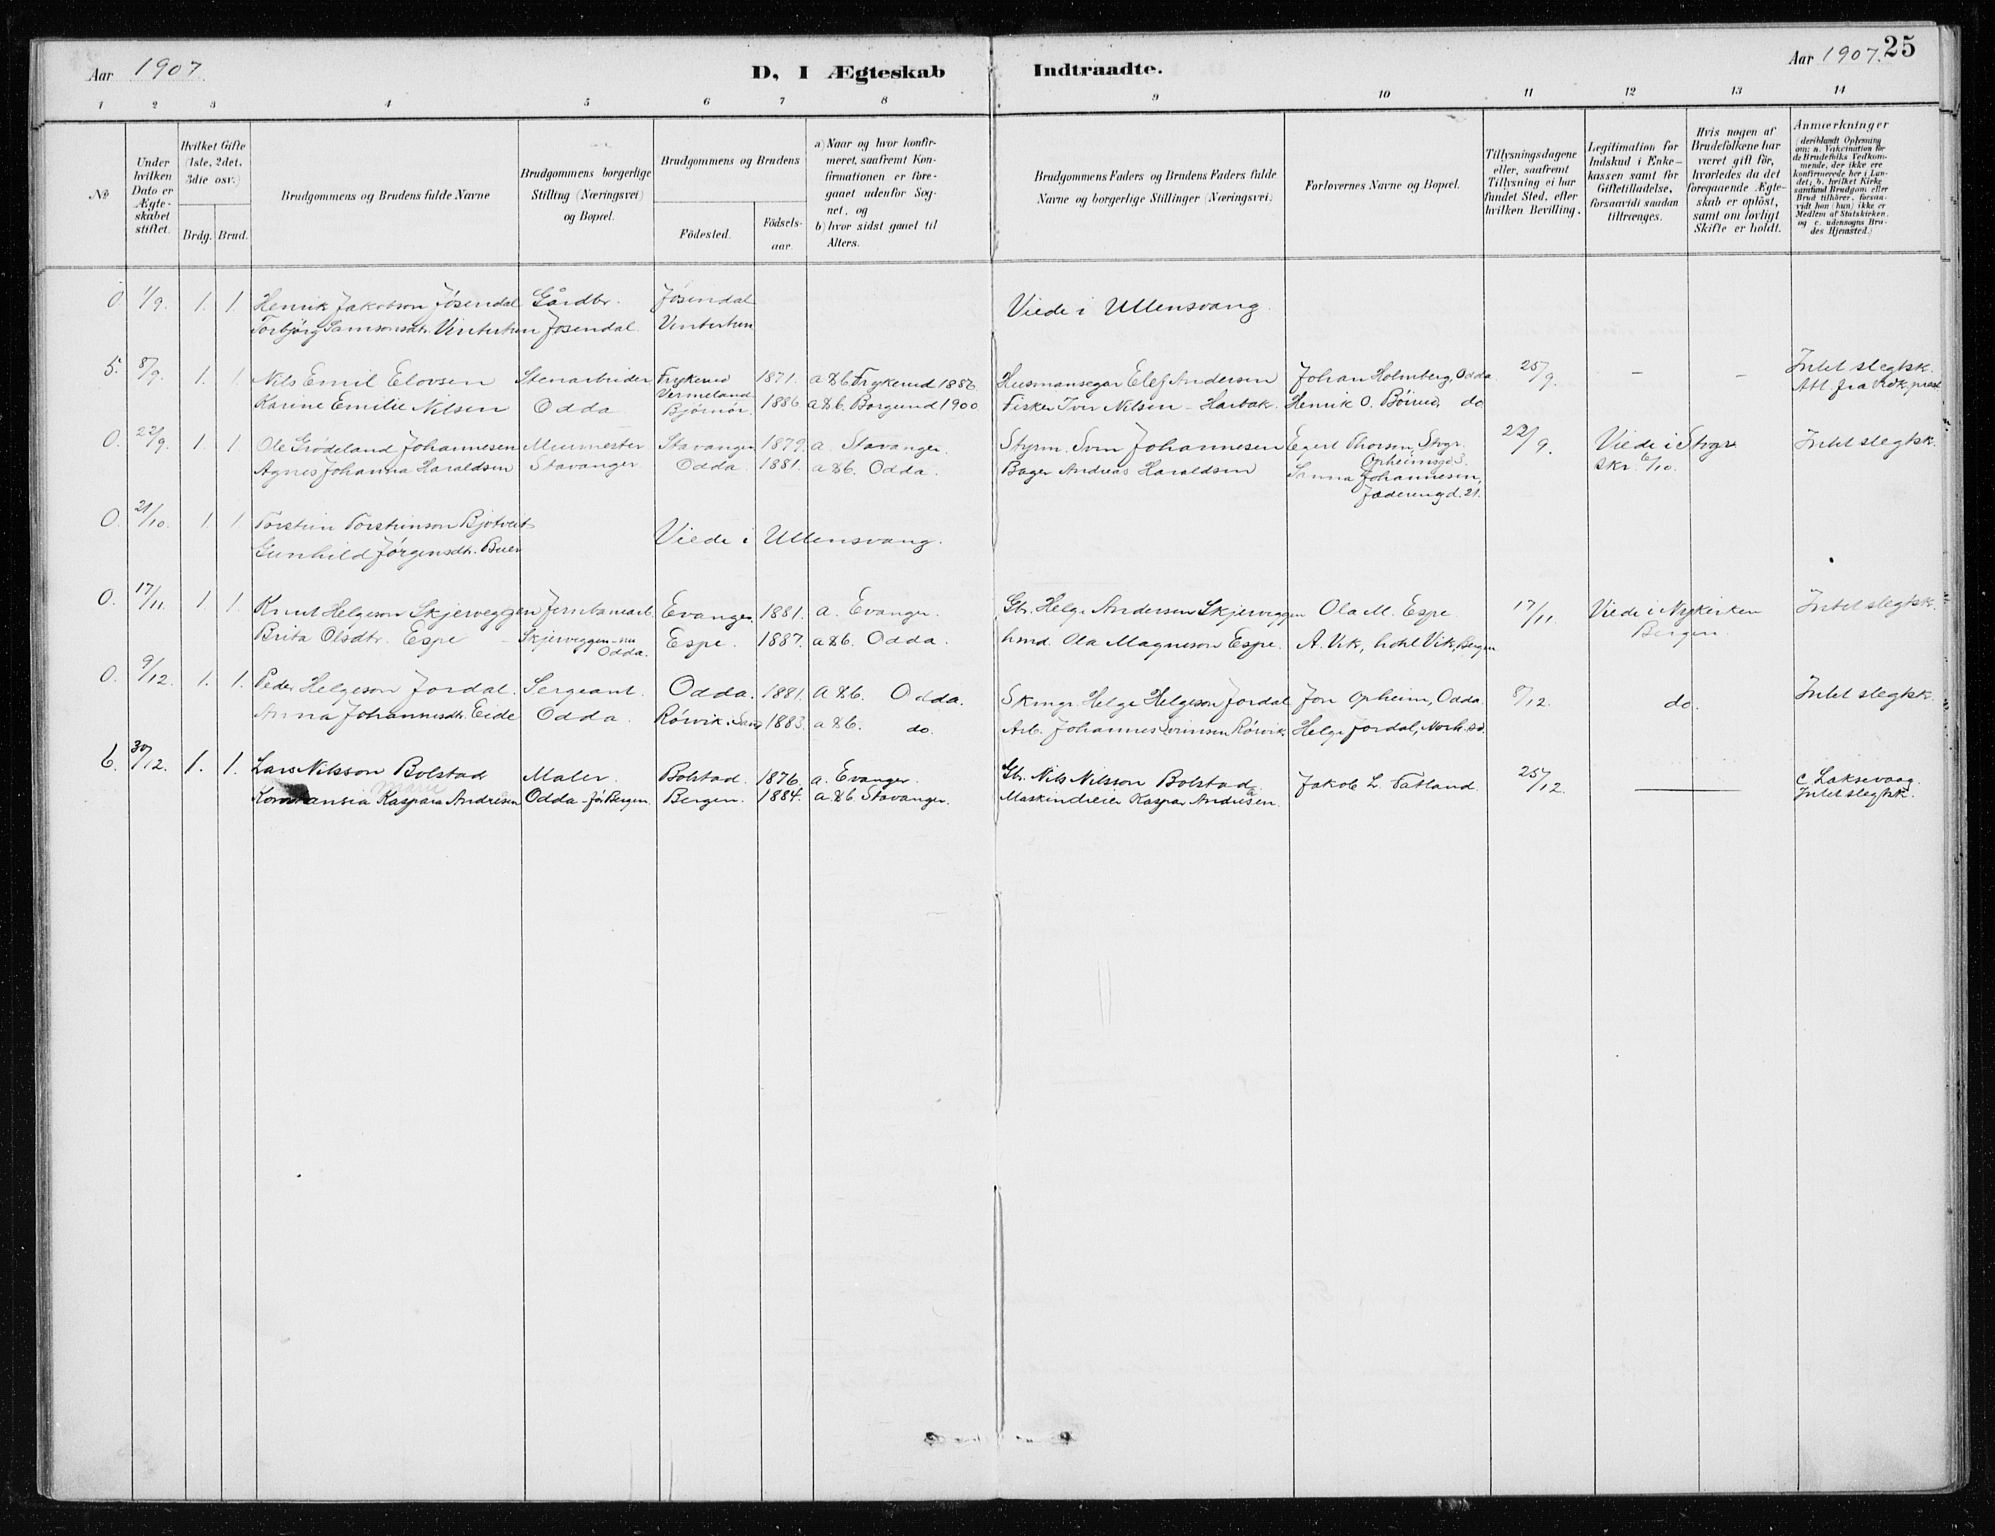 Aar 1907.
D, I Ægteskab Indtraadte.
Aar 1907. 25
1 2 3 4 5 6 7 8 9 10 11 12 13 14
№
Under hvilken Dato er Ægteskabet stiftet.
Hvilket Gifte (1ste, 2det, 3die osv.)
Brdg. Brud.
Brudgommens og Brudens fulde Navne
Brudgommens borgerlige Stilling (Næringsvei) og Bopæl.
Brudgommens og Brudens
Födested. Födselsaar.
a) Naar og hvor konfirmeret, saafremt Konfirmationen er foregaaet udenfor Sognet, og
b) hvor sidst gaaet til Alters.
Brudgommens Faders og Brudens Faders fulde Navne og borgerlige Stillinger (Næringsvei)
Forlovernes Navne og Bopæl.
Tillysningsdagene eller, saafremt Tillysning ei har fundet Sted, efter hvilken Bevilling.
Legitimation for Indskud i Enkekassen samt for Giftetilladelse, forsaavidt saadan tiltrænges.
Hvis nogen af Brudefolkene har været gift för, hvorledes da det foregaaende Ægteskab er oplöst, samt om lovligt Skifte er holdt.
Anmærkninger (deriblandt Oplysning om: a. Vakcination for de Brudefolks Vedkommende, der ikke ere konfirmerede her i Landet; b. hvilket Kirkesamfund Brudgom eller Brud tilhörer, forsaavidt han (hun) ikke er Medlem af Statskirken, og c. udensogns Brudes Hjemsted.)
0 1/9. 1. 1. Henrik Jakobson Jösendal Gårdbr. Jösendal Viede i Ullensvang.
Torbjörg Samsonsdtr. Vintertun Jösendal. Vintertun
5. 8/9. 1. 1. Nils Emil Elovsen Stenarbeider Frykerud Vermeland 1871. a & b. Frykerud 1886 Husmansegar Elef Andersen Johan Holmberg, Odda 25/9. - - Intet slegtsk. Att. fra
Karine Emilie Nilsen Odda Björnör. 1886 a & b. Borgund 1900 Fisker Iver Nilsen - Harbak. Henrik O. do
0. 22/9. 1 1 Ole Grödeland Johannesen Murmester Stavanger 1879. a. Stavanger. Styrm. Sven Johannesen Egert Thorsen, Stvgr. Opheimsgd 3. 22/9. Viede i Stvgr Intet slegtsk.
Agnes Johanna Haraldsen Stavanger Odda. 1881. a & b. Odda. Bager Andreas Haraldsen Sanna Johannesen, Jæderengd. 21. skr. 6/10.
0. 21/10. 1 1 Torstein Torsteinson Bjotveit
Gunhild Jörgensdtr. Buer Viede i Ullensvang.
0. 17/11. 1. 1. Knut Helgeson Skjerveggen Jernbanearb. Evanger. 1881. a. Evanger. Gbr. Helge Andersen Skjerveggen Ola M. Espe 17/11. Viede i Nykirken Bergen. Intet slegtsk.
Brita Olsdtr. Espe Skjerveggen - nu Odda. Espe. 1887. a & b. Odda. hmd. Ola Magneson Espe. A. Vik, hotel Vik, Bergen
0. 9/12. 1. 1. Peder Helgeson Jordal. Sergeant. Odda. 1881. a & b. Odda. Skmgr. Helge Helgeson Jordal Jon Opheim, Odda. 8/12. do. Intet slegtsk.
Anna Johannesdtr. Eide Odda. Rörvik i 1883. a & b. do. Arb. Johannes Rörvik. Helge Jordal,
6. 30/12. 1. 1. Lars Nilsson Bolstad Maler. Bolstad. 1876. a. Evanger. Gbr. Nils Nilsson Bolstad. Jakob L. Tatland. 25/12. c. Laksevaag. Intet slegtsk.
Konstansia Kaspara Andresen Odda - för Bergen. Bergen. 1884. a & b. Stavanger. Maskindreier Kaspar Andresen.